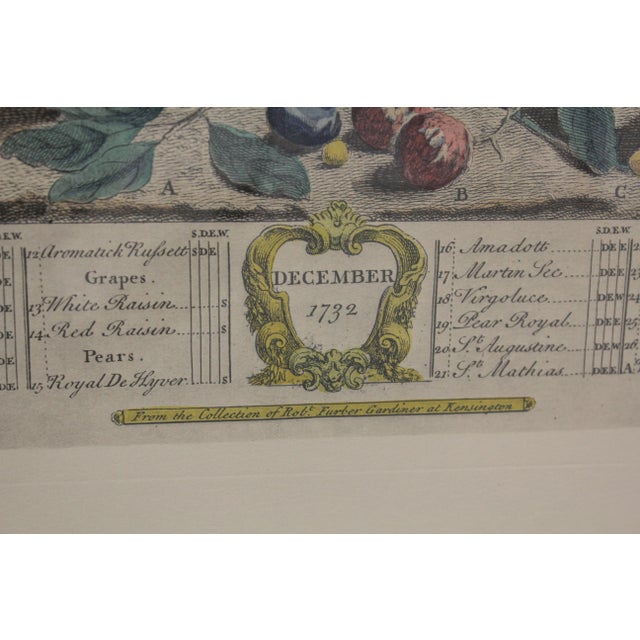 A
B
C
S.D.E.W.
12 Aromatick Russett SDE
Grapes.
13 White Raisin S
14 Red Raisin S
Pears.
15 Royal De Hyver S
DECEMBER
1732
S.D.E.W.
16 Amadott DEE
17 Martin Sec DEE
18 Virgoluce DEW
19 Pear Royal DEE
20 St. Augustine DEW
21 St. Mathias DEE
From the Collection of Robt. Furber Gardiner at Kensington